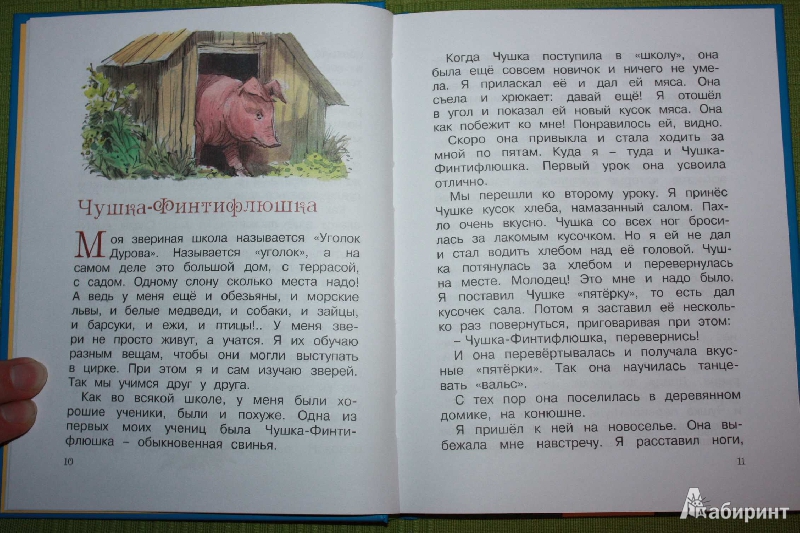 Чушка-Финтифлюшка
Моя звериная школа называется «Уголок
Дурова». Называется «уголок», а на
самом деле это большой дом, с террасой,
с садом. Одному слону сколько места надо!
А ведь у меня ещё и обезьяны, и морские
львы, и белые медведи, и собаки, и зайцы,
и барсуки, и ежи, и птицы!.. У меня зве-
ри не просто живут, а учатся. Я их обучаю
разным вещам, чтобы они могли выступать
в цирке. При этом я и сам изучаю зверей.
Так мы учимся друг у друга.
Как во всякой школе, у меня были хо-
рошие ученики, были и похуже. Одна из
первых моих учениц была Чушка-Финти-
флюшка – обыкновенная свинья.
10
Когда Чушка поступила в «школу», она
была ещё совсем новичок и ничего не уме-
ла. Я приласкал её и дал ей мяса. Она
съела и хрюкает: давай ещё! Я отошёл
в угол и показал ей новый кусок мяса. Она
как побежит ко мне! Понравилось ей, видно.
Скоро она привыкла и стала ходить за
мной по пятам. Куда я – туда и Чушка-
Финтифлюшка. Первый урок она усвоила
отлично.
Мы перешли ко второму уроку. Я принёс
Чушке кусок хлеба, намазанный салом. Пах-
ло очень вкусно. Чушка со всех ног броси-
лась за лакомым кусочком. Но я ей не дал
и стал водить хлебом над её головой. Чуш-
ка потянулась за хлебом и перевернулась
на месте. Молодец! Это мне и надо было.
Я поставил Чушке «пятёрку», то есть дал
кусочек сала. Потом я заставил её несколь-
ко раз повернуться, приговаривая при этом:
– Чушка-Финтифлюшка, перевернись!
И она перевёртывалась и получала вкус-
ные «пятёрки». Так она научилась танце-
вать «вальс».
С тех пор она поселилась в деревянном
домике, на конюшне.
Я пришёл к ней на новоселье. Она вы-
бежала мне навстречу. Я расставил ноги,
11
Лабиринт